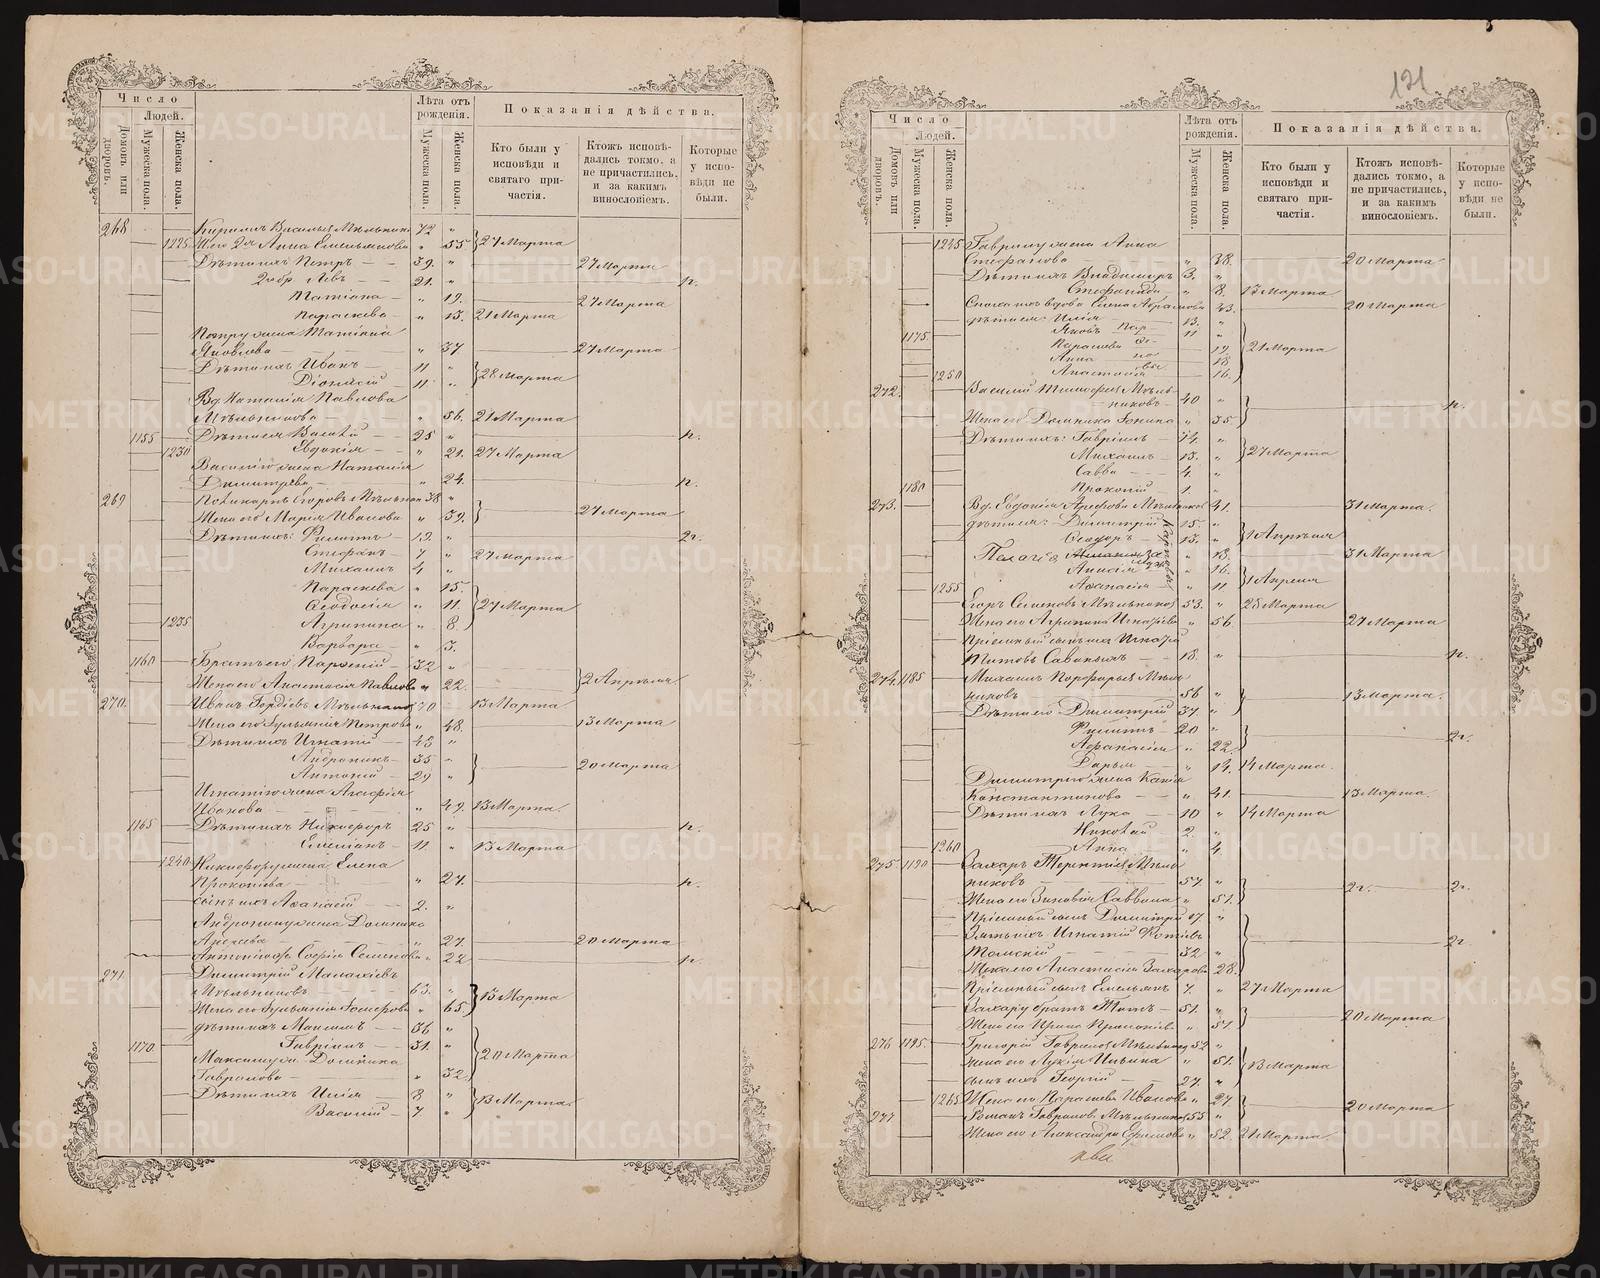 Число
Людей.
Домовъ или дворовъ.
Мужеска пола.
Женска пола.
Лѣта отъ рожденія.
Мужеска пола.
Женска пола.
Показанія дѣйства.
Кто были у исповѣди и святаго причастія.
Ктожъ исповѣдались токмо, а не причастились, и за какимъ винословіемъ.
Которые у исповѣди не были.
268 Кириллъ Васильевъ Мельник 72 "
1225 Жена его Анна Емельянова " 55 27 Марта
Дѣти ихъ Петръ 39. " 27 Марта
Левъ 21. " н.
Татіана " 19. 27 Марта
Параскева " 15. 21 Марта
Петру жена Татіана
Яковлева " 37 27 Марта
Дѣти ихъ Иванъ 11 "
Діонисій 11 " 28 Марта
Вд. Наталія Павлова
Мельникова " 56. 21 Марта
1155 Дѣти ея Василій 25 " н.
1230 Евдокія " 21. 27 Марта
Василію жена Наталія
Димитріева " 24. н.
269 Поликарпъ Егоровъ Мельник 38 "
Жена его Марія Иванова " 39. 27 Марта
Дѣти ихъ: Филиппъ 12. " 2г.
Стефанъ 7 " 27 Марта
Михаилъ 4 "
Параскева " 15.
Ѳеодосія " 11. 27 Марта
1235 Агрипина " 8.
Варвара " 3.
1160 Братъ его Парѳеній 32 "
Жена его Анастасія Павлова " 22. 2 Апрѣля
270. Иванъ Гордѣевъ Мельников 70 13 Марта
Жена его Іуліанія Петрова " 48. 13 Марта
Дѣти ихъ Игнатій 43 "
Андроникъ 35 "
Антоній 29 " 20 Марта
Игнатію жена Агафія
Иванова " 49. 13 Марта.
1165 Дѣти ихъ Никифоръ 25 " н.
Емеліанъ 11 " 13 Марта
1240 Никифору жена Елена
Прокопіева " 27. н.
сынъ ихъ Аѳанасій 2. "
Андронику жена Домника
Андреева " 27. 20 Марта
Антонію ж. Софія Семенова " 22 н.
271 Димитрій Малахіевъ
Мельниковъ 63. "
Жена его Іуліанія Іосифова " 65. 13 Марта
дѣти ихъ Максимъ 36 "
1170. Гавріилъ 31. "
Максиму ж. Домника 20 Марта
Гаврилова " 32.
Дѣти ихъ Илія 8 "
Василій 7 " 13 Марта.
121
Число
Людей.
Домовъ или дворовъ.
Мужеска пола.
Женска пола
Лѣта отъ рожденія.
Мужеска пола.
Женска пола.
Показанія дѣйства.
Кто были у исповѣди и святаго причастія.
Ктожъ исповѣдались токмо, а не причастились, и за какимъ винословіемъ.
Которые у исповѣди не были.
1245 Гаврилу жена Анна
Стефанова " 38. 20 Марта
Дѣти ихъ Владимиръ 3. "
Степанида " 8. 13 Марта
вдова Елена Абрамова 43. 20 Марта
дѣти ея: Илія 13. "
1175. Яковъ 11 "
Параскева " 19. 21 Марта
Анна " 18.
1250 Анастасія " 16.
272. Василій Тимофеевъ Мельниковъ 40 " н.
Жена его Домника Іонина " 35
Дѣти ихъ: Гавріилъ 14. "
Михаилъ 13. " 27 Марта
Савва 4. "
1180 Прокопій 1. "
273. Вд. Евдокія Арефова Мельников 41. 31 Марта.
дѣти ея: Димитрій 15. "
Ѳеодоръ 13. " 1 Апрѣля
Пелагія " 18. 31 Марта
Анисія " 16.
1255 Аѳанасія " 11. 1 Апреля
Егоръ Семеновъ Мельников 53. " 28 Марта
Жена его Агрипина Игнатіева " 56. 27 Марта
Пріемный сынъ ихъ
Титовъ Савиныхъ 18. " н.
274. 1185 Михаилъ Порфирьев Мельниковъ 56 " 13 Марта.
Дѣти его Димитрій 37. "
Филиппъ 20 "
Афанасія " 22. 2г.
Дарья " 14. 14 Марта.
Димитрію жена
Константинова " 41. 13 Марта.
Дѣти ихъ Лука 10 " 14 Марта
Николай 2. "
1260 Анна " 4.
275 1190 Захаръ Терентіев Мельниковъ 57. " 2г. 2г.
Жена его Зиновія Саввина " 51.
Пріемный сынъ Димитрій 17. "
Зять ихъ Игнатій
Томскій 32 " 2г.
Жена его Анастасія Захарова " 28.
Пріемный сынъ Емельянъ 7. " 27 Марта
Захару братъ Титъ 51. "
Жена его Ирина Прокопіева " 51. 20 Марта
276 1195. Григорій Гаврилов Мельников 52 "
Жена его Лукія Ильина " 51.
сынъ ихъ Георгій 27. " 13 Марта
1265 Жена его Параскева Иванова " 27
277 Романъ Гаврилов Мельников 55 " 20 Марта
Жена его Александра Ефимова " 52. 21 Марта.